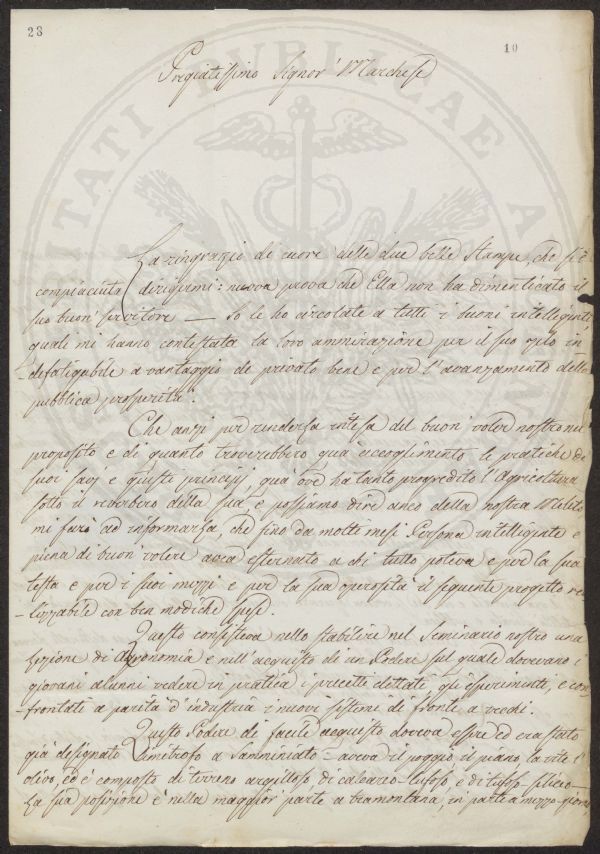 28
10
Pregiatissimo Signor' Marchese
La ringrazio di cuore delle due belle Stampe, che si è
compiaciuta dirigermi: nuova prova che Ella non ha dimenticato il
suo buon' servitore — Io le ho circolate a tutti i buoni intelligenti
quali mi hanno contestata la loro ammirazione per il suo zelo in-
defatigabile a vantaggio del privato bene e per l'avanzamento della
pubblica prosperità.
Che anzi per renderla intesa del buon' voler nostro nel
proposito e di quanto troverebbero qua accoglimento le pratiche dei
suoi savj e giusti principij qua ove ha tanto progredito l'Agricoltura
sotto il riverbero della sua e possiamo dire anco della nostra Meleto
mi farò ad informarla, che fino da molti mesi Persona intelligente e
piena di buon' volere avea esternato a chi tutto poteva e per la sua
testa e per i suoi mezzi e per la sua operosità il seguente progetto rea-
lizzabile con ben modiche spese.
Questo consisteva nello stabilire nel Seminario nostro una
Lezione di Agronomia e nell'acquisto di un Podere sul quale dovevano i
giovani alunni vedere in pratica i precetti dettati, gli esperimenti, e con-
frontati a parità d'industria i nuovi sistemi di fronte a' vecchi.
Questo Podere di facile acquisto doveva essere ed era stato
già designato limitrofo a Samminiato — aveva il poggio, il piano, la vite l'
olivo, ed è composto di terreno argilloso di calcareo-tufoso, e di tufoso siliceo—
La sua posizione è nella maggior' parte a tramontana, in parte a mezzo-giorno,
PUBLICAE